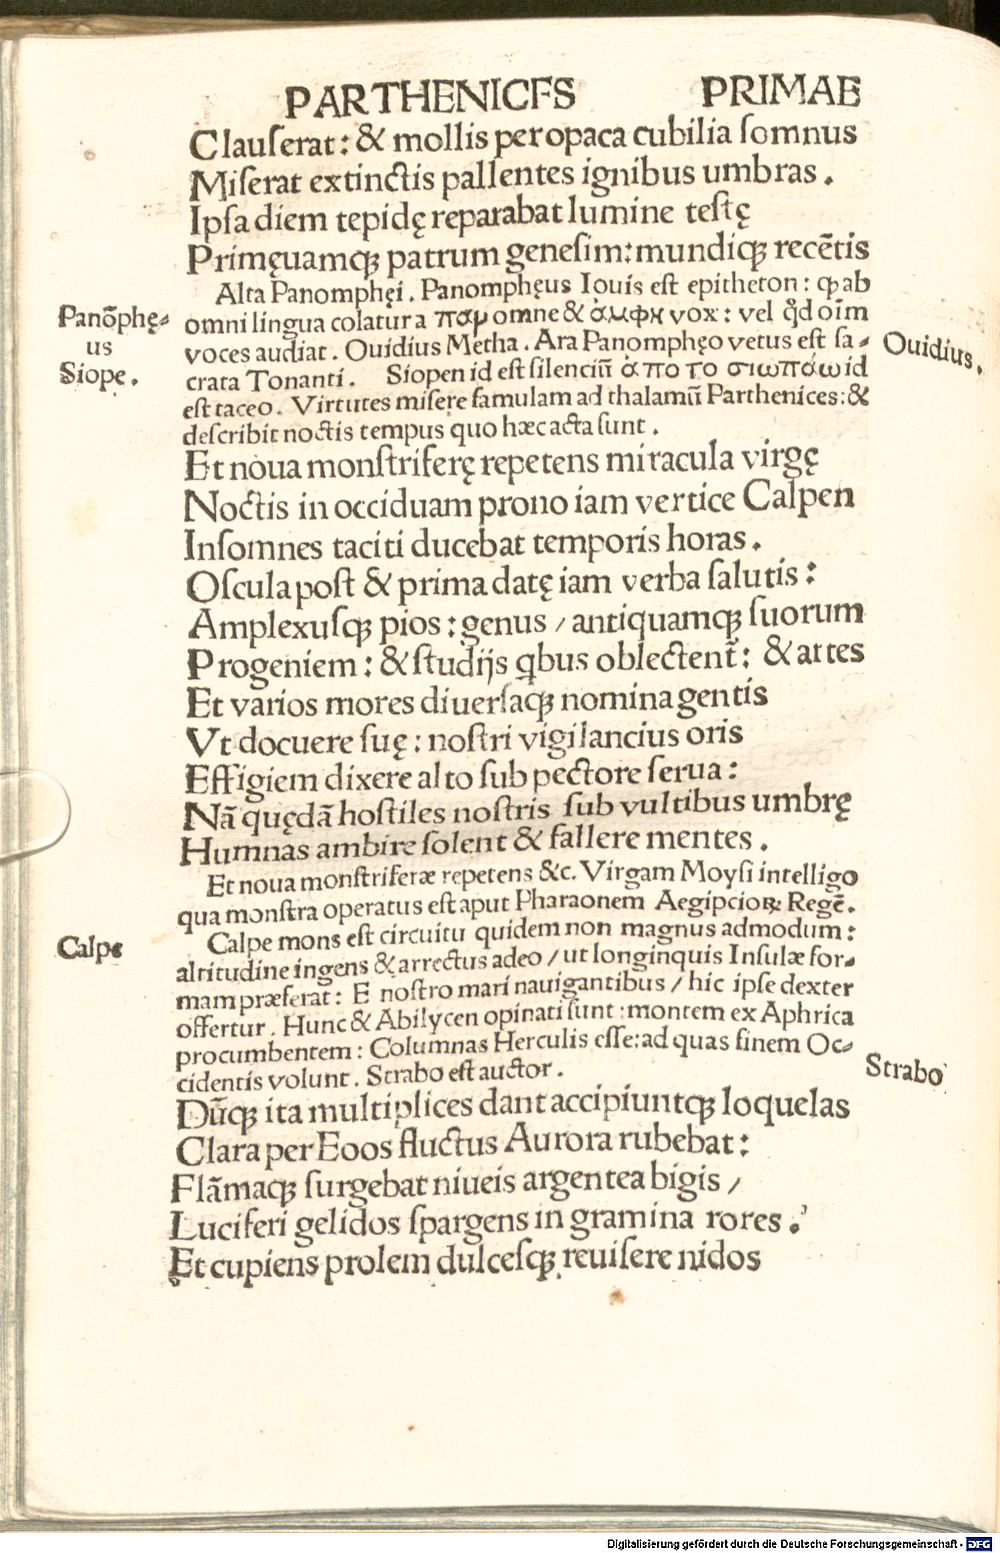 PARTHENICES PRIMAE
Clauſerat: & mollis per opaca cubilia ſomnus
Miſerat extinctis pallentes ignibus umbras.
Ipſa diem tepidę reparabat lumine teſtę
Primęuamqꝫ patrum geneſim: mundiqꝫ recētis
Alta Panomphęi. Panomphęus Iouis eſt epitheton: ꝙ ab
Panōphę-
us
omni lingua colatur a παμ omne & αμφη vox: vel qd̄ oīm
voces audiat. Ouidius Metha. Ara Panomphęo vetus eſt ſa-
Ouidius.
Siope.
crata Tonanti. Siopen id eſt ſilenciū α πο το σιωπαω id
eſt taceo. Virtutes miſere famulam ad thalamū Parthenices: &
deſcribit noctis tempus quo hæc acta ſunt.
Et noua monſtriferę repetens miracula virgę
Noctis in occiduam prono iam vertice Calpen
Inſomnes taciti ducebat temporis horas.
Oſcula poſt & prima datę iam verba ſalutis:
Amplexuſqꝫ pios: genus / antiquamqꝫ ſuorum
Progeniem: & ſtudijs qbus oblectent̄: & artes
Et varios mores diuerſaqꝫ nomina gentis
Vt docuere ſuę: noſtri vigilancius oris
Effigiem dixere alto ſub pectore ſerua:
Nā quędā hoſtiles noſtris ſub vultibus umbrę
Humnas ambire ſolent & fallere mentes.
Et noua monſtriferæ repetens &c. Virgam Moyſi intelligo
qua monſtra operatus eſt aput Pharaonem Aegipcioꝝ Regē.
Calpe
Calpe mons eſt circuitu quidem non magnus admodum:
altitudine ingens & arrectus adeo / ut longinquis Inſulæ for-
mam præferat: E noſtro mari nauigantibus / hic ipſe dexter
offertur. Hunc & Abilycen opinati ſunt: montem ex Aphrica
procumbentem: Columnas Herculis eſſe: ad quas finem Oc-
cidentis volunt. Strabo eſt auctor.
Strabo
Dūqꝫ ita multiplices dant accipiuntqꝫ loquelas
Clara per Eoos fluctus Aurora rubebat:
Flāmaqꝫ ſurgebat niueis argentea bigis /
Luciferi gelidos ſpargens in gramina rores.
Et cupiens prolem dulceſqꝫ reuiſere nidos
Digitalisierung gefördert durch die Deutsche Forschungsgemeinschaft - DFG